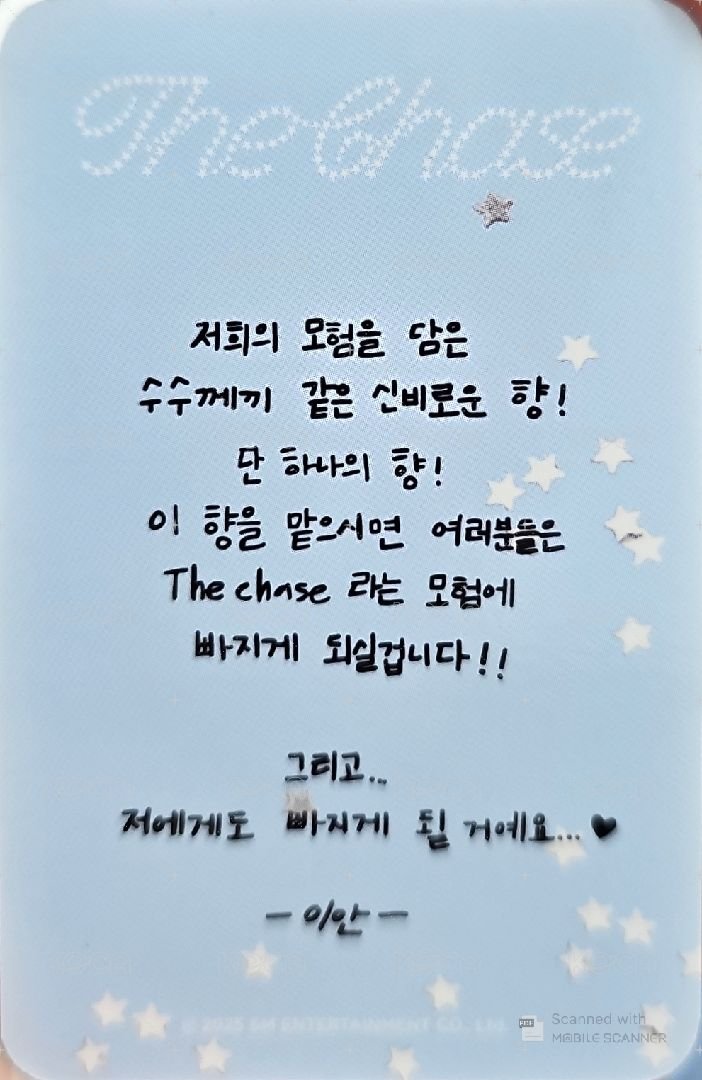 The Chase
저희의 모험을 담은
수수께끼 같은 신비로운 향!
단 하나의 향!
이 향을 맡으시면 여러분들은
The chase 라는 모험에
빠지게 되실겁니다!!
그리고...
저에게도 빠지게 될 거예요... ♥
- 이안 -
© 2025 SM ENTERTAINMENT CO., Ltd.
PDF
Scanned with
MOBILE SCANNER